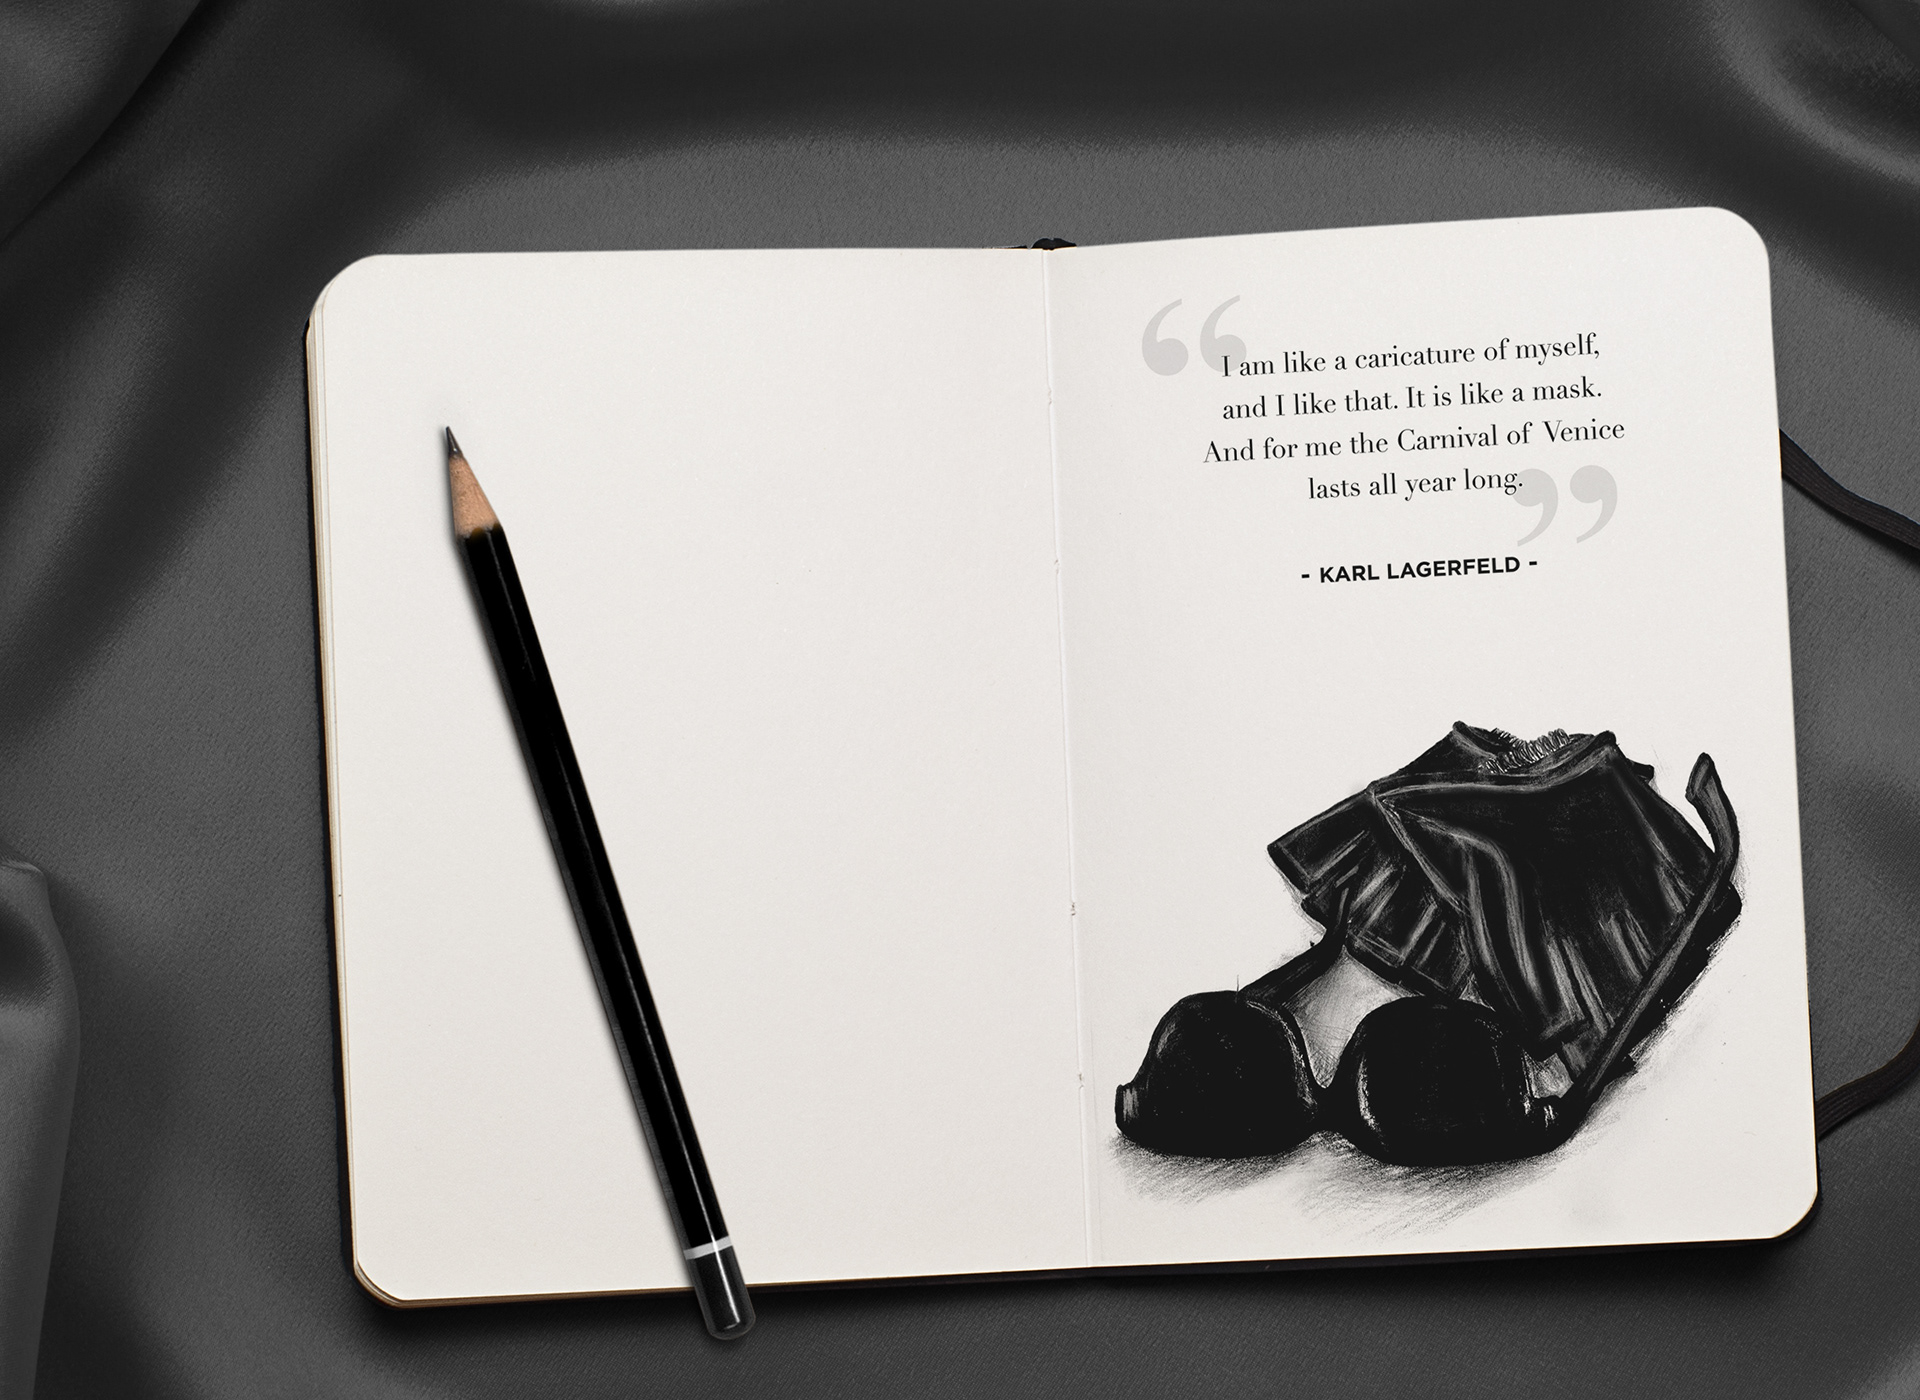 “I am like a caricature of myself,
and I like that. It is like a mask.
And for me the Carnival of Venice
lasts all year long.”
- KARL LAGERFELD -